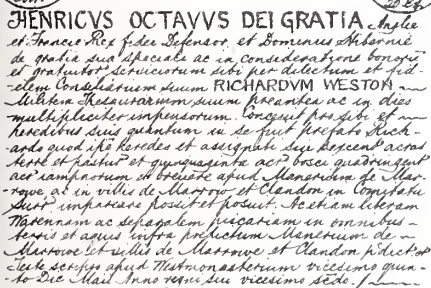 HENRICVS OCTAVVS DEI GRATIA Anglie
et Francie Rex fidei Defensor, et Dominus Hibernie
de gratia sua speciale ac in consideratione boni
et gratuitor serviciorum sibi per delectum et fid-
-elem Consiliarium suum RICHARDVM WESTON
Militem Thesaurarium suum preantea ac in dies
multipliciter impensorum. Concessit pro sibi et
heredibus suis quantum in se fuit prefato Rich-
ardo quod ipe heredes et assignati sui sexcent acras
terre et pastur et quinquaginta acr bosci quadringent
acr iampnorum et bruere apud Manerium de Mar-
-rowe ac in villis de Marrow et Clandon in Comitatu
Surr imparcare possit et posuit. Ac etiam liberam
Warennam ac separalem piscariam in omnibus
terris et aquis infra predictum Manerium de
Marrowe et villis de Marrowe et Clandon p'dict. et
Teste scripto apud Westmonasterium vicesimo quin-
-to Die Maii Anno regni sui vicesimo sc̄do./